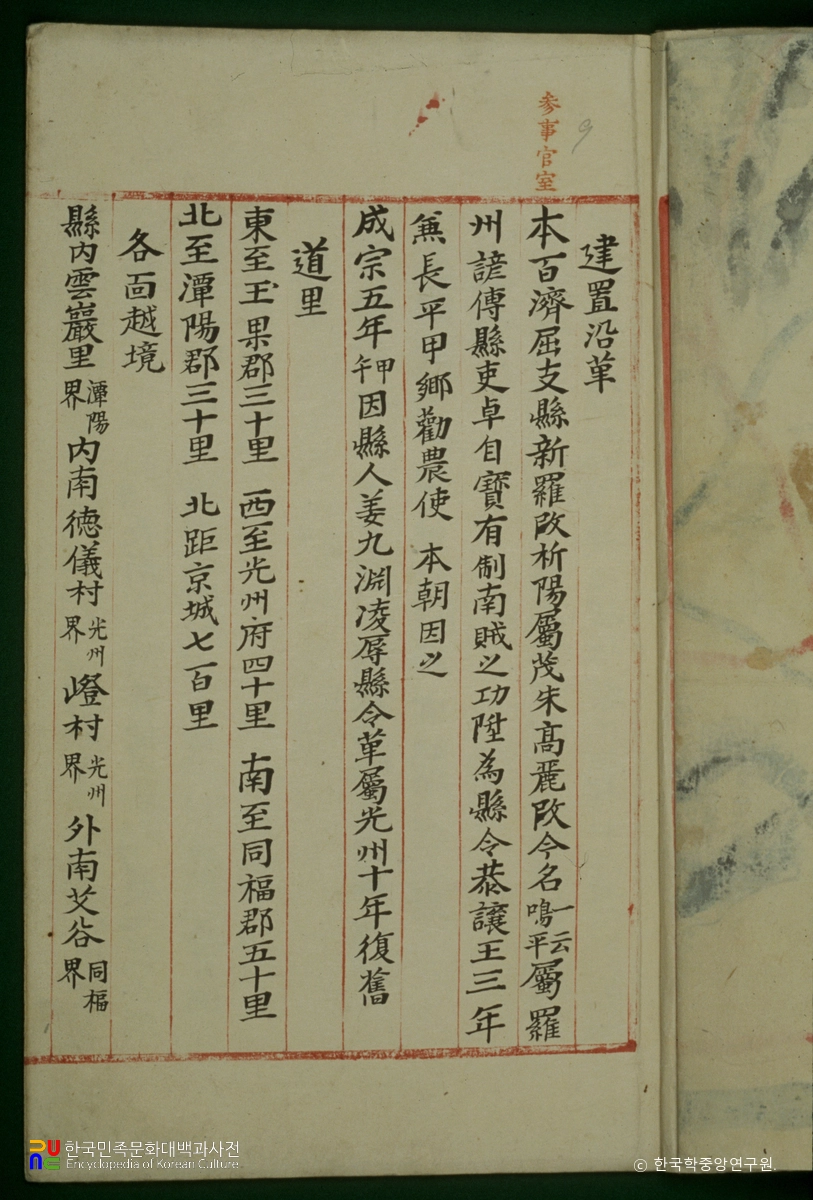 参事官室
9
建置沿革
本百濟屈支縣新羅改析陽屬茂朱高麗改今名一云鳴平屬羅
州諺傳縣吏卓自寶有制南賊之功陞為縣令恭讓王三年
兼長平甲鄉勸農使 本朝因之
成宗五年甲午因縣人姜九淵凌辱縣令革屬光州十年復舊
道里
東至玉果郡三十里 西至光州府四十里 南至同福郡五十里
北至潭陽郡三十里 北距京城七百里
各面越境
縣內雲巖里潭陽界 內南德儀村光州界 嶝村光州界 外南艾谷同福界
한국민족문화대백과사전
Encyclopedia of Korean Culture
© 한국학중앙연구원.